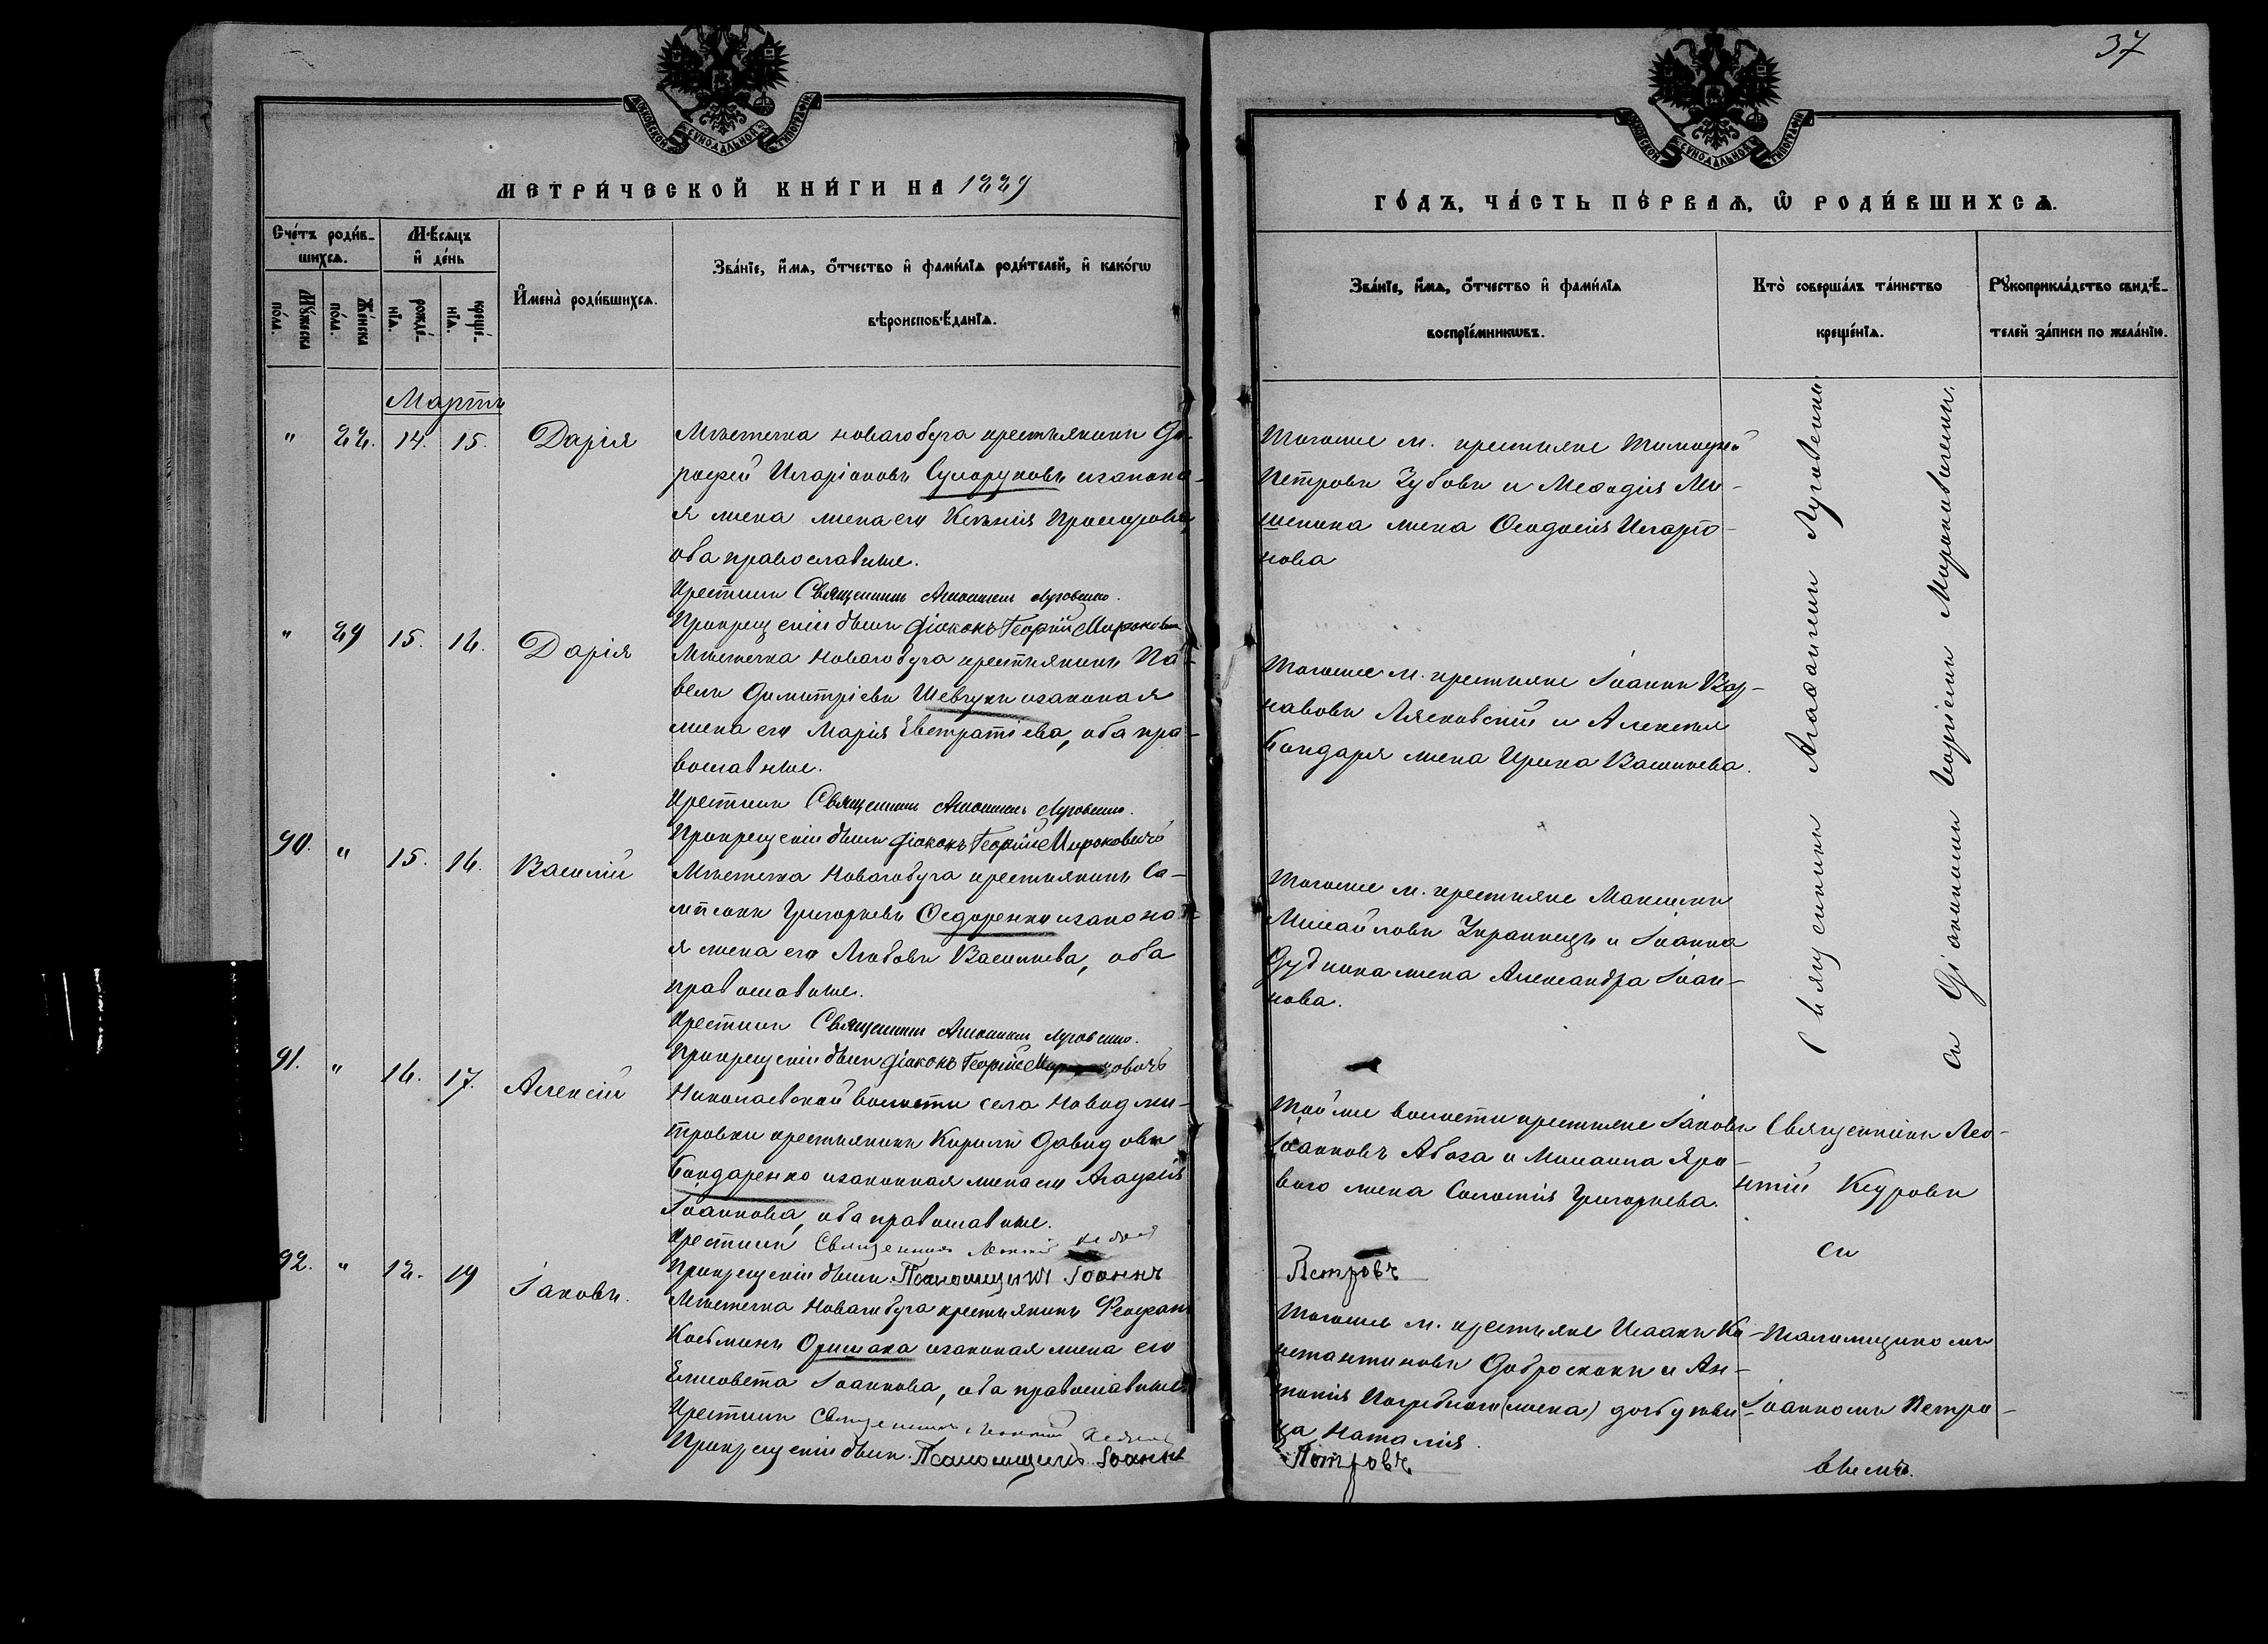 37
МОСКОВСКОЙ СѴНОДАЛЬНОЙ ТИПОГРАФІИ
МОСКОВСКОЙ СѴНОДАЛЬНОЙ ТИПОГРАФІИ
МЕТРИ́ЧЕСКОЙ КНИ́ГИ НА 1889
ГО́ДЪ, ЧА́СТЬ ПЕ́РВАѦ, Ѽ РОДИ́ВШИХСѦ.
Сче́тъ роди́в-
шихсѧ.
Мꙋ́жеска
по́ла.
Же́нска
по́ла.
Мѣ́сѧцъ
и҆ де́нь
рожде́-
нїѧ.
креще́-
нїѧ.
И҆мена̀ роди́вшихсѧ.
Зва́нїе, и҆́мѧ, ѻ҆́тчество и҆ фами́лїѧ роди́телей, и҆ како́гѡ
вѣроисповѣ́данїѧ.
Зва́нїе, и҆́мѧ, ѻ҆́тчество и҆ фами́лїѧ
воспрїе́мникѡвъ.
Кто̀ соверша́лъ та́инство
креще́нїѧ.
Рꙋкоприкла́дство свидѣ́-
телей за́писи по жела́нїю.
Мартъ
" 88. 14. 15. Дарія
Мѣстечка Новагобуга крестьянинъ До-
рофей Иларіоновъ Сухоруковъ изаконна-
я жена его Ксенія
оба православные.
Крестилъ Священникъ Агафоникъ Луговенко.
Прикрещеніи былъ Діаконъ Георгій Мироновичъ
Тогоже м. крестьяне Тимофей
Петровъ Зубовъ и Меѳодія Ми-
жена Ѳеодосія Иларіо-
нова
" 89 15. 16. Дарія
Мѣстечка Новагобуга крестьянинъ Па-
велъ Димитріевъ Шевчукъ изаконная
жена его Марія Евстратіева, оба пра-
вославные.
Крестилъ Священникъ Агафоникъ Луговенко.
Прикрещеніи былъ Діаконъ Георгій Мироновичъ
Тогоже м. крестьяне Іоаннъ Вар-
навовъ Лясковскій и Алексѣя
Бондаря жена Ирина Васильева.
90. " 15. 16. Василій
Мѣстечка Новагобуга крестьянинъ Са-
мпсонъ Григорьевъ Ѳедоренко изаконна-
я жена его Любовь Васильева, оба
православные.
Крестилъ Священникъ Агафоникъ Луговенко.
Прикрещеніи былъ Діаконъ Георгій Мироновичъ
Тогоже м. крестьяне Максимъ
Михайловъ Украинецъ и Іоанна
Дудника жена Александра Іоан-
нова.
Священникъ Агаѳоникъ Луговенко
съ Діакономъ Георгіемъ Мироновичемъ.
91. " 16. 17. Алексій
Николаевской волости села Новодми-
тровки крестьянинъ Кирилъ Давидовъ
Бондаренко изаконная жена его Агафія
Іоаннова, оба православные.
Крестилъ Священникъ Леонтій
Прикрещеніи былъ Псаломщикъ Іоаннъ
Петровъ
Тойже волости крестьяне Іаковъ
Іоанновъ Абаза и Михаила Яро-
вого жена Соломія Григорьева.
Священникъ Лео-
нтій
съ
92. " 18. 19 Іаковъ.
Мѣстечка Новагобуга крестьянинъ Феофанъ
Косьминъ Оришака изаконная жена его
Елисавета Іоаннова, оба православные
Крестилъ Священникъ Леонтій
Прикрещеніи былъ Псаломщикъ Іоаннъ
Петровъ
Тогоже м. крестьяне Исаакъ Ко-
нстантиновъ Доброскокъ и Ан-
тонія Погребного (жена) дочь дѣви-
ца Наталія.
Псаломщикомъ
Іоанномъ Петро-
вымъ.